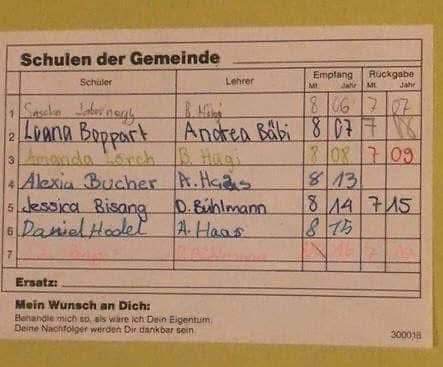 Schulen der Gemeinde
Schüler Lehrer Empfang Rückgabe
Mt. Jahr Mt. Jahr
1 8 06 7 07
2 Luana Boppart Andrea Bäbi 8 07 7 08
3 Amanda Lörch B. Hügi 8 08 7 09
4 Alexia Bucher A. Haas 8 13
5 Jessica Bisang D. Bühlmann 8 14 7 15
6 Daniel Hodel A. Haas 8 15
7
Ersatz:
Mein Wunsch an Dich:
Behandle mich so, als wäre ich Dein Eigentum.
Deine Nachfolger werden Dir dankbar sein.
300018